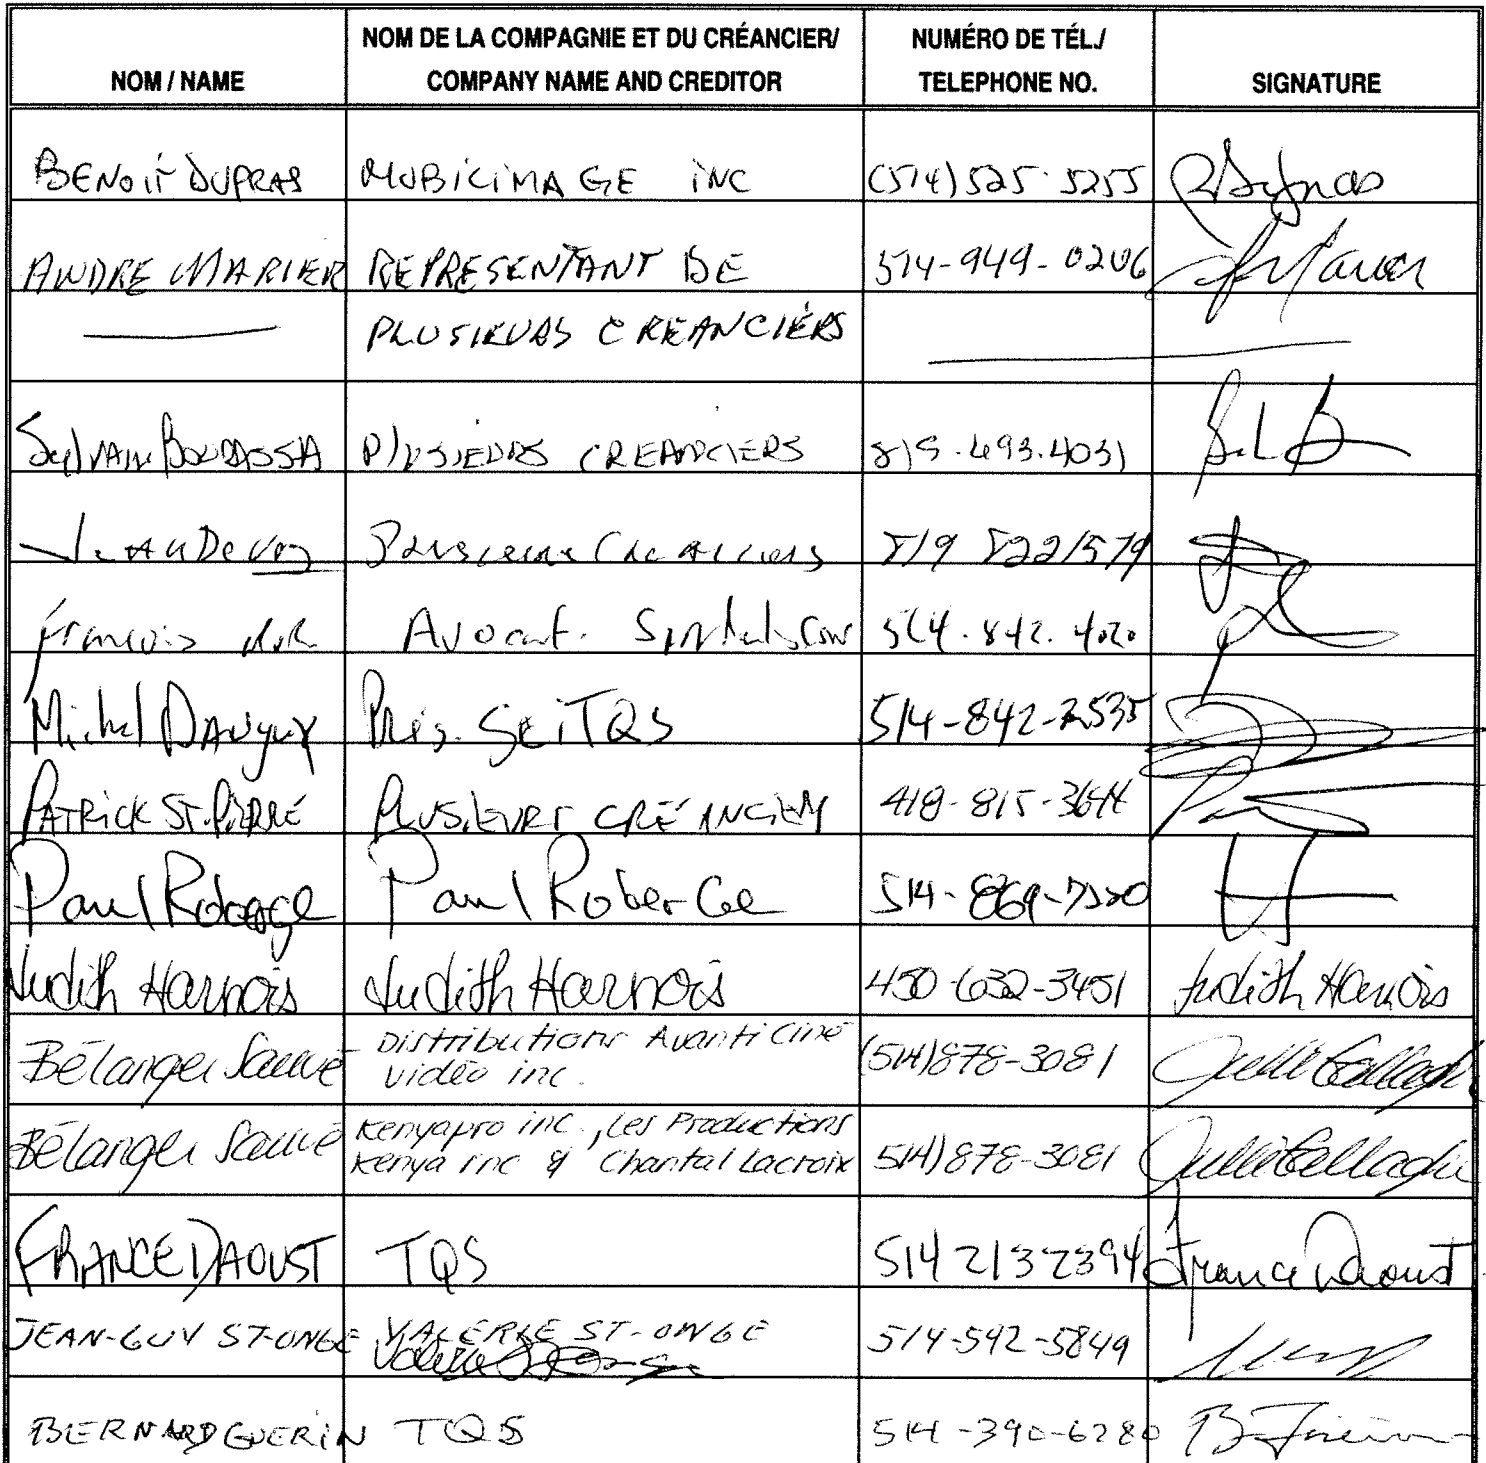 NOM / NAME
NOM DE LA COMPAGNIE ET DU CRÉANCIER/
COMPANY NAME AND CREDITOR
NUMÉRO DE TÉL./
TELEPHONE NO.
SIGNATURE
BENOIT DUPRAS MUBICIMAGE INC (514) 525-5255
ANDRE MARIER REPRESENTANT DE 514-949-0206
PLUSIEURS CREANCIÉRS
Sylvain Bourassa PLUSIEURS CREANCIERS 819.693.4031
819 822 1579
François Avocat. 514.842.4020
Michel Prés. SEITQS 514-842-2535
PATRICK ST-PIERRE PLUSIEURS CRÉANCIER 418-815-3644
Paul Roberge Paul Roberge 514-869-7220
Judith Harnois Judith Harnois 450-632-3451 Judith Harnois
Bélanger Sauvé Distributions Avanti Ciné
vidéo inc. (514) 878-3081
Bélanger Sauvé Kenyapro inc., Les Productions
Kenya inc & Chantal Lacroix 514) 878-3081
FRANCE DAOUST TQS 514 213 2394 France Daoust
JEAN-GUY ST-ONGE VALERIE ST-ONGE 514-592-5849
BERNARD GUERIN TQS 514-390-6280